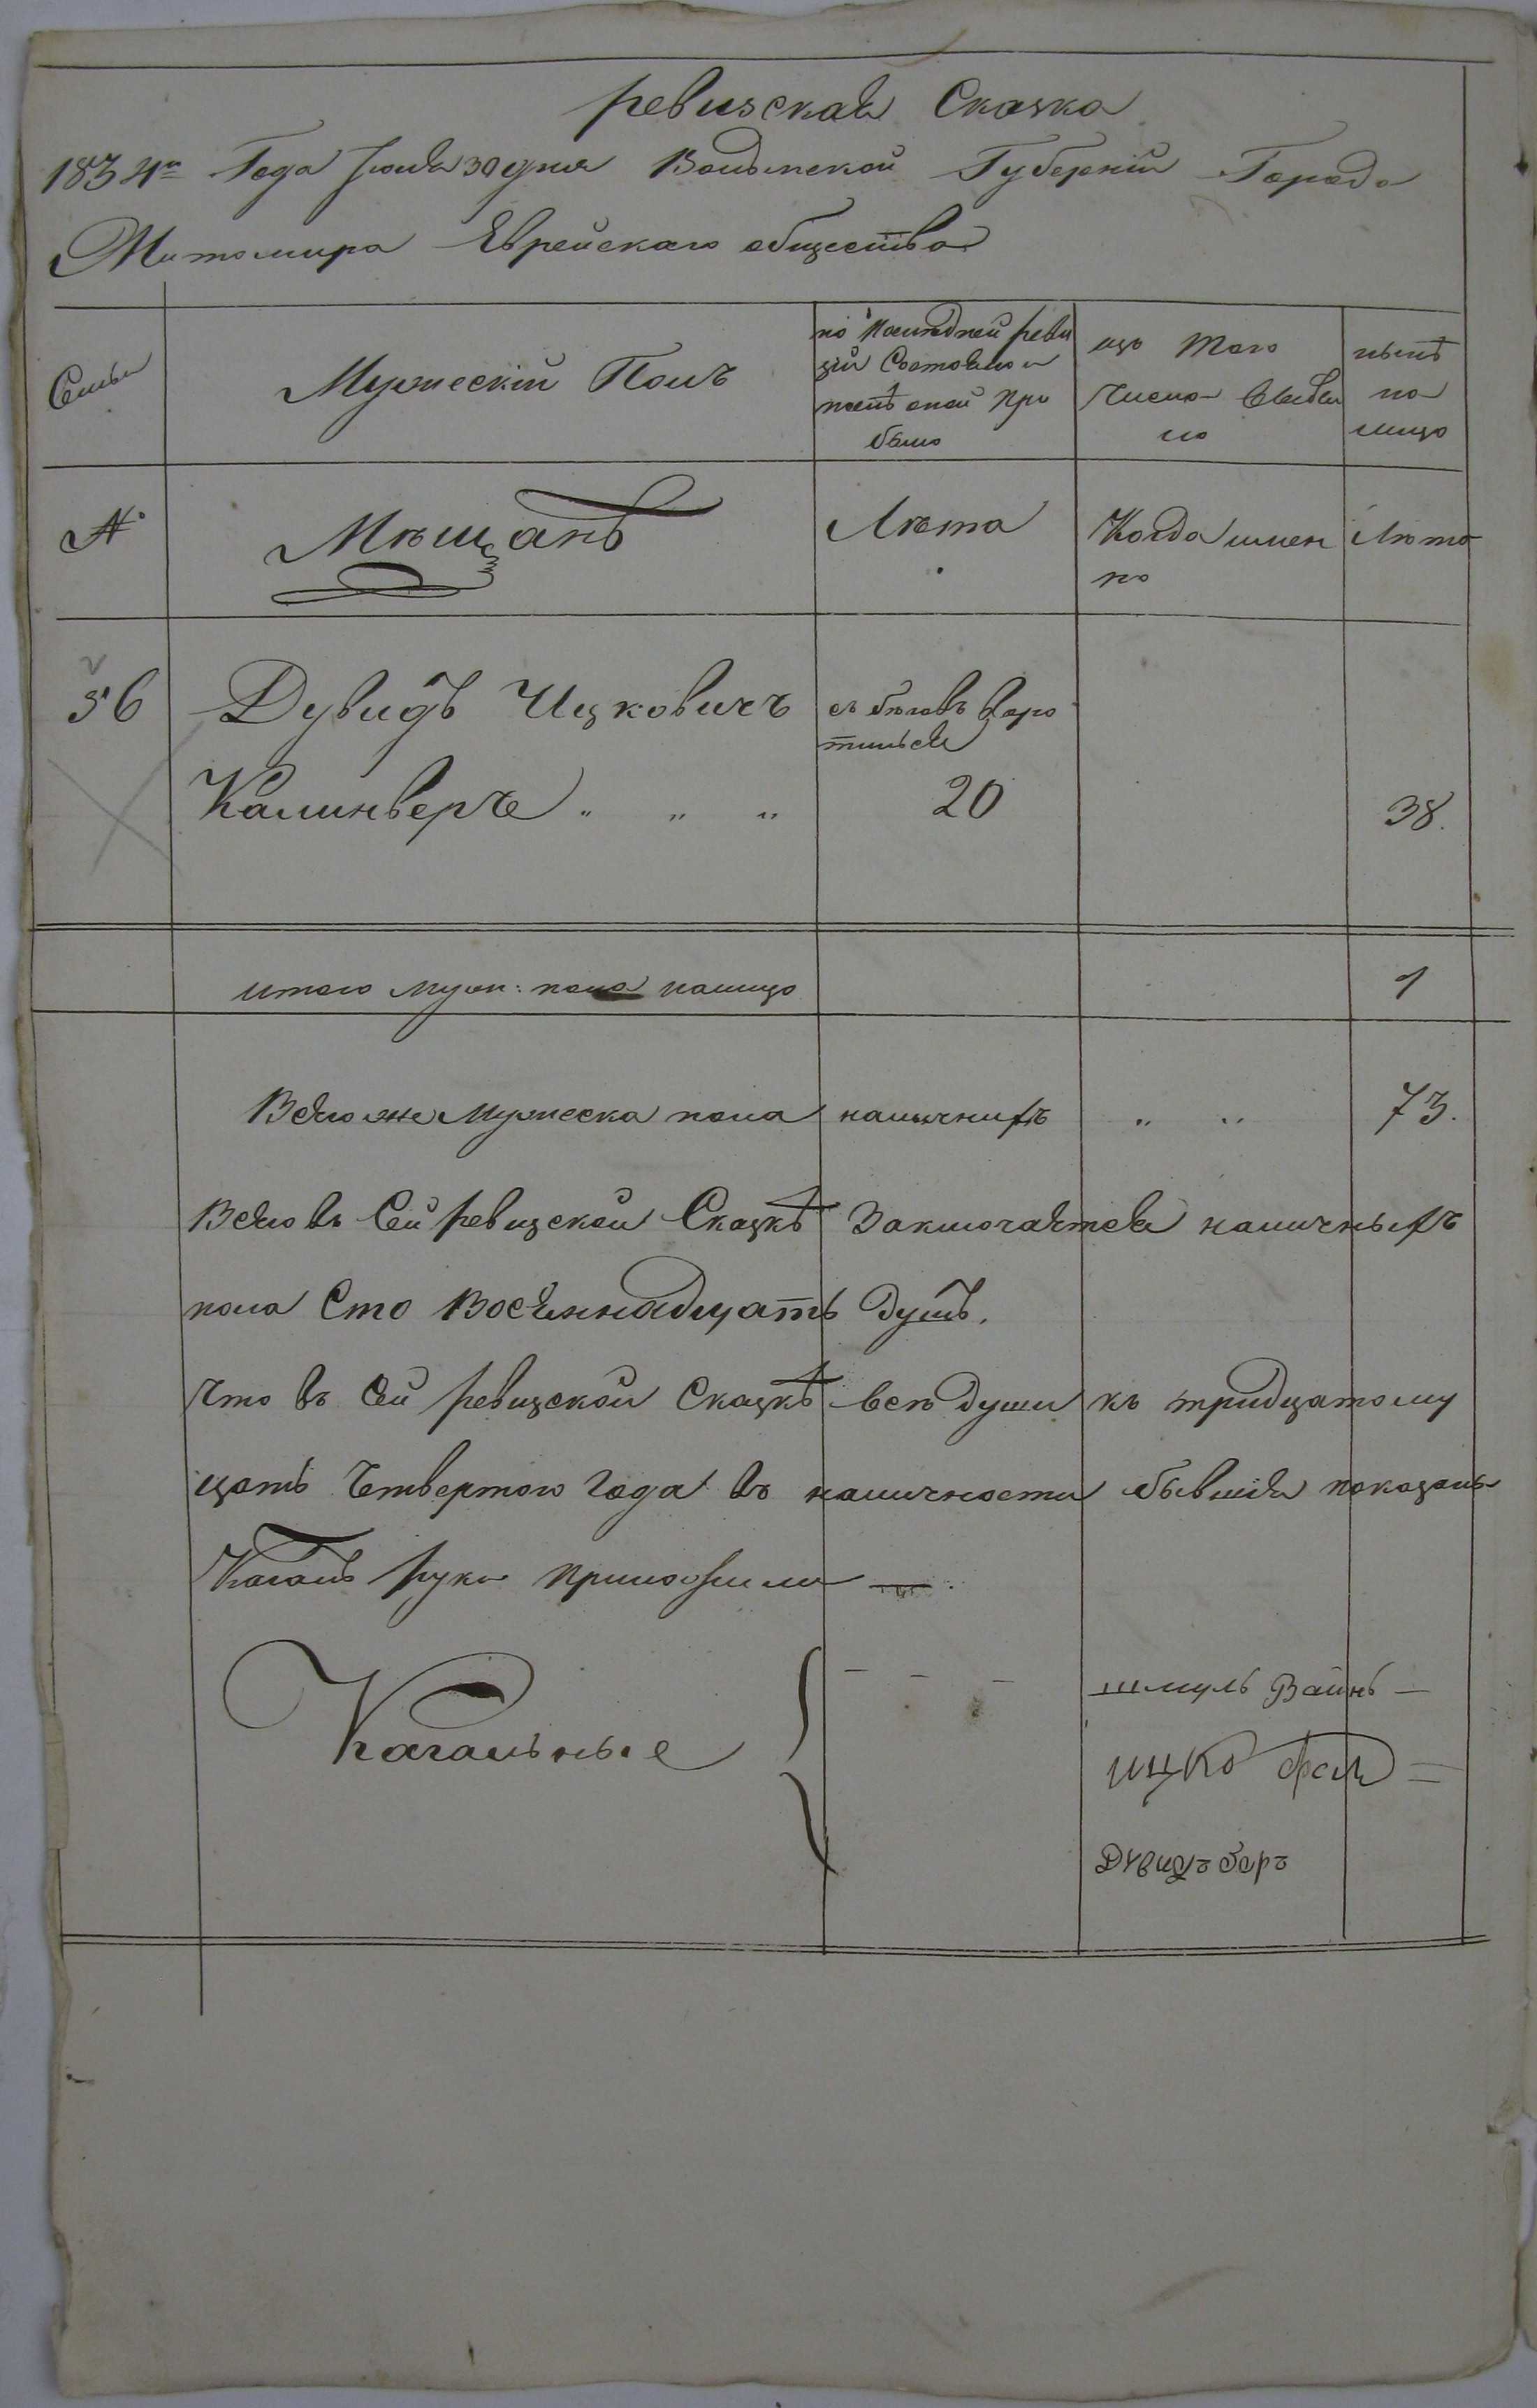 Ревизская Сказка
1834го Года Июня 30 дня Волынской Губерніи Города
Житомира Еврейскаго общества
Семьи
Мужескій Полъ
по последней реви
зіи Состояло и
послѣ оной при
было
изъ того
числа выбы
ло
нынѣ
на
лицо
№
Мѣщанъ
Лѣта
Когда имен
но
Лѣта
56
Дувидъ Ицковичъ
съ бѣговъ воро
тился
Калинверъ " " "
20
38.
итого муж: пола налицо
1
Всего же мужеска пола наличныхъ " "
73.
Всего въ Сей ревизской Сказкѣ Заключается наличныхъ
пола Сто Восемнадцать душъ.
что въ Сей ревизской Сказкѣ всѣ души къ тридцатому
цать четвертого года въ наличности бывшія показаны
Кагалъ руки приложили —
Кагальные
шмуль Вайнъ —
ицко фел =
Дувидъ Беръ